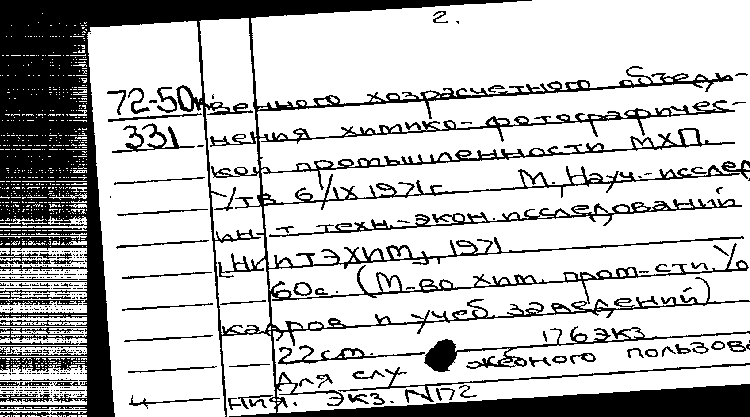 2.
72-50к венного хозрасчетного объеди-
331 нения химико-фотографичес-
кой промышленности МХП.
Утв. 6/IX 1971г. М., Науч.-исслед
ин-т техн.-экон. исследований
[НИИТЭХИМ], 1971.
60с. (М-во хим. пром-сти. У
кадров и учеб. заведений)
22см. 176экз
Для служебного пользова
4 ния. Экз. №72